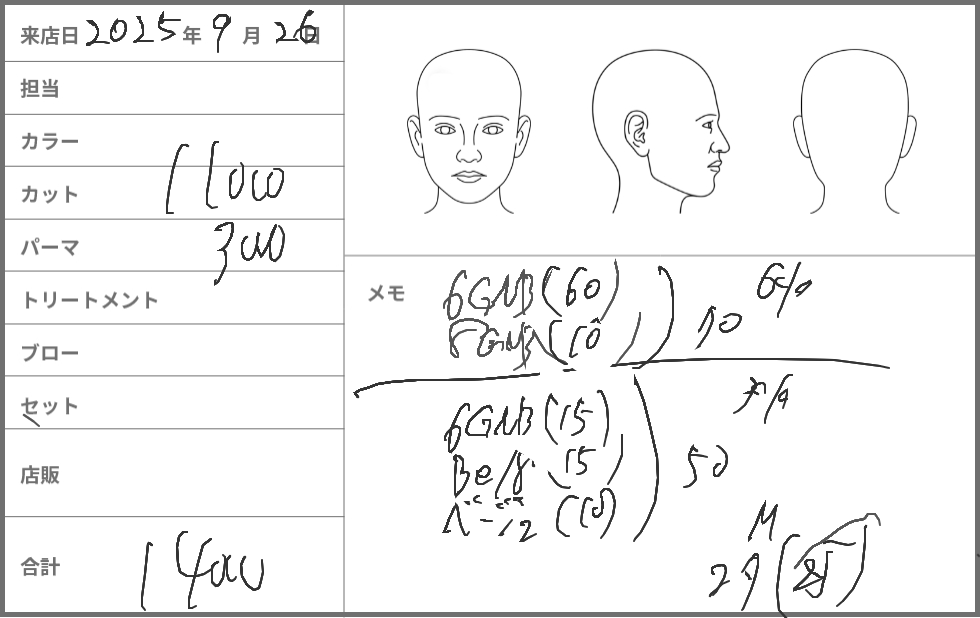 来店日 2025年 9月 26日
担当
カラー
カット 11000
パーマ 3000
トリートメント
ブロー
セット
店販
合計 14000
メモ
6GNB(60)
8GNB(10)
10 6%
6GNB(15)
Be/8 15
(10)
50
M
29